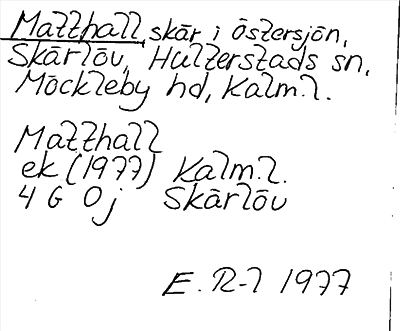 Matthall, skär i Östersjön,
Skärlöv, Hulterstads sn,
Möckleby hd, Kalm.l.
Matthall
ek (1977) Kalm.l.
4 G 0j Skärlöv
E. R-l 1977